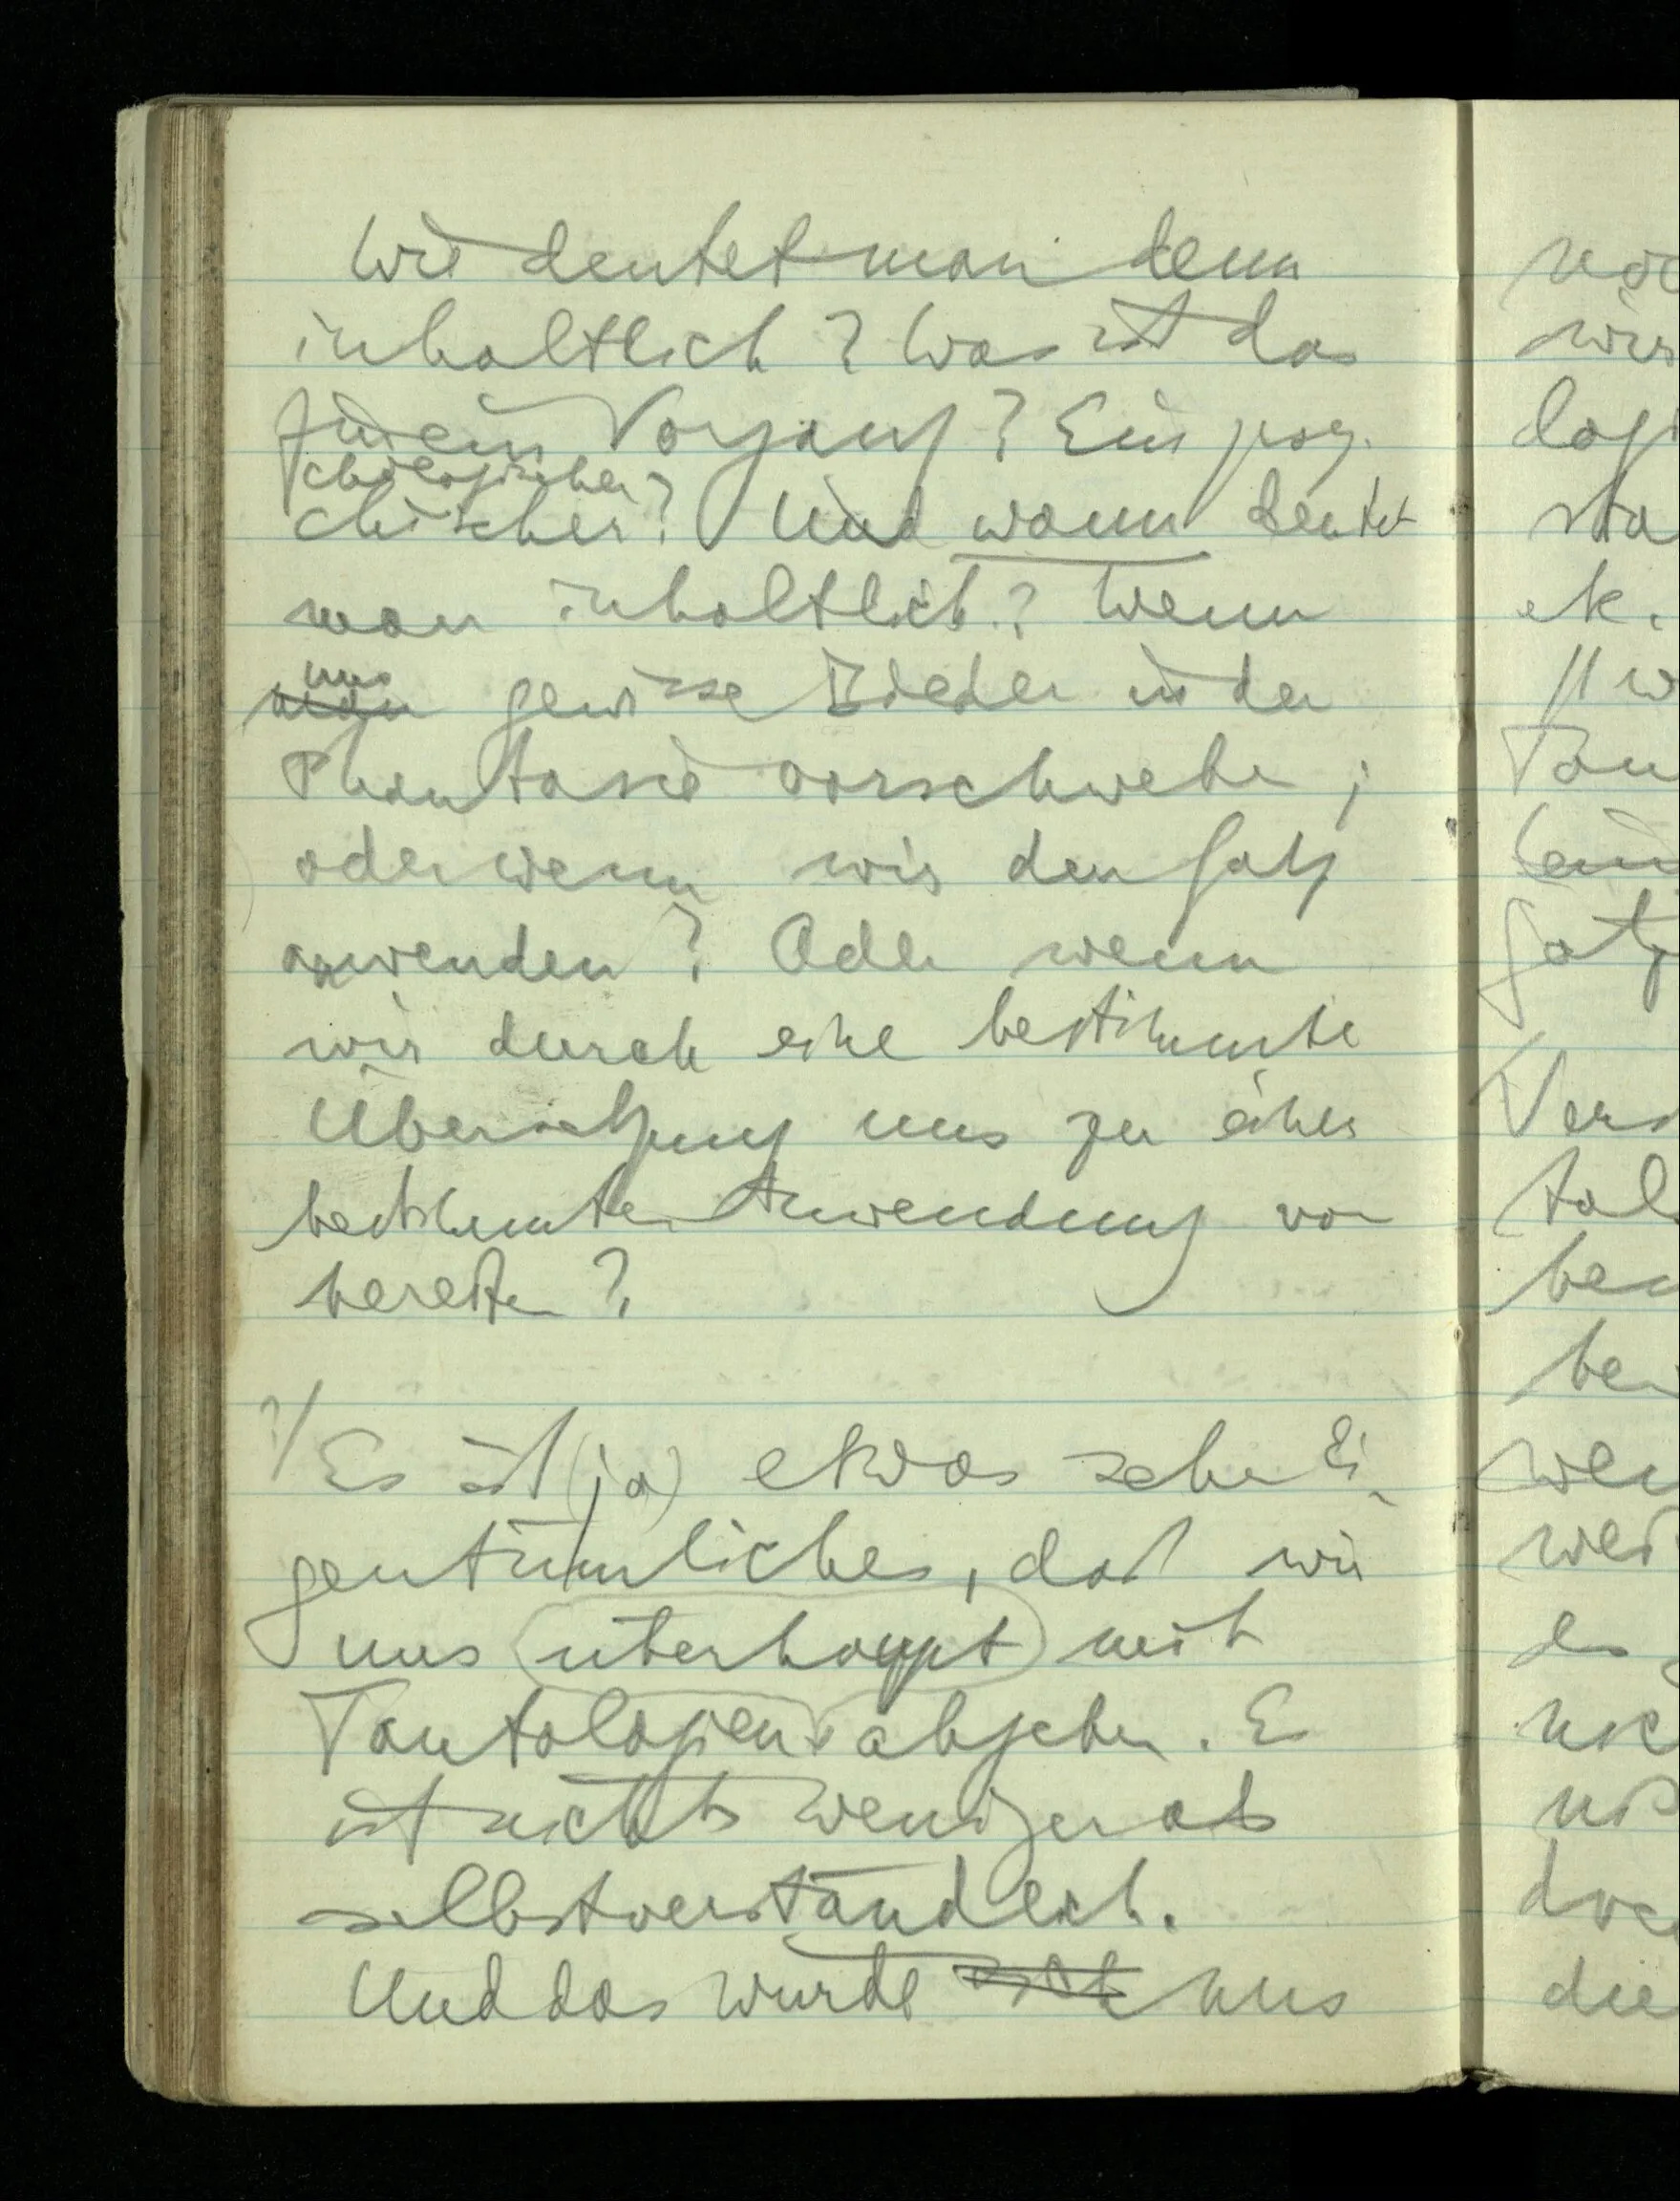 Wie deutet man denn
inhaltlich? Was ist das
für ein Vorgang? Ein psy-
chologischer?
chischer? Und wann deutet
man inhaltlich? Wenn
uns
man gewisse Bilder in der
Phantasie vorschweben;
oder wenn wir den Satz
anwenden? Oder wenn
wir durch eine bestimmte
Übersetzung uns zu einer
bestimmten Anwendung vor
bereiten?
?/ Es ist (ja) etwas sehr Ei-
gentümliches, daß wir
uns (überhaupt) mit
Tautologien abgeben. Es
ist nichts weniger als
selbstverständlich.
Und das wurde uns
wir
logi
Tau
Satz
Vers
ben
die